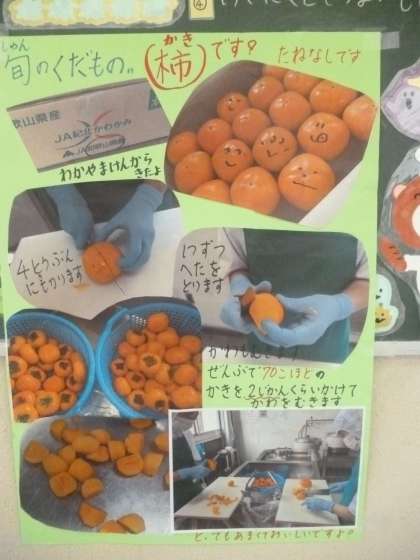 しゅん
旬のくだもの。
かき
柿です?
たねなしです
歌山県産
JA紀北かわかみ
JA和歌山県農
わかやまけんから
きたよ
4とうぶん
にもきります
1つずつ
へたを
とります
かわも
ぜんぶで70こほどの
かきを2じかんくらいかけて
かわをむきます
とってもあまくておいしいですよ